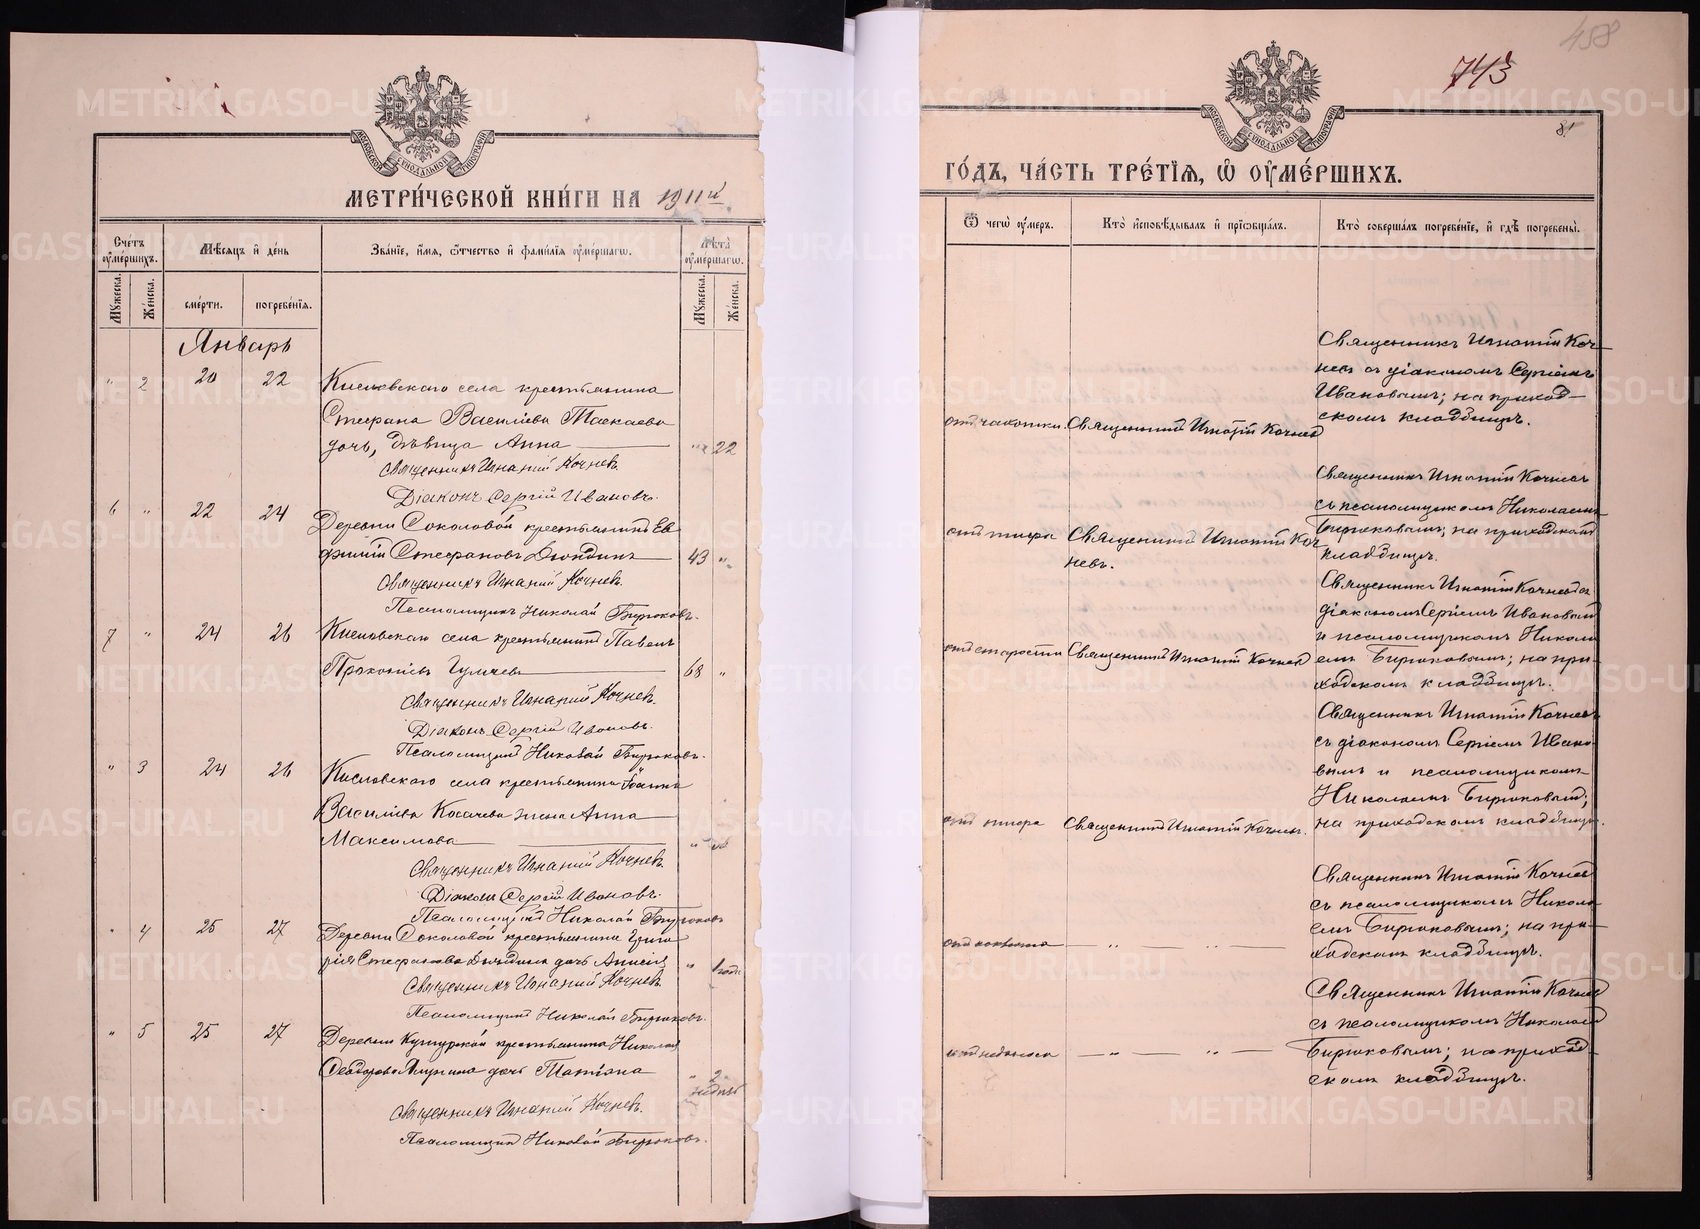 МЕТРИ́ЧЕСКОЙ КНИ́ГИ НА 1911й
Сче́тъ ᲂу҆ме́ршихъ.
Мѣ́сяцъ и҆ де́нь
Зва́нїе, и҆́мя, ѻ҆́тчество и҆ фами́лїя ᲂу҆ме́ршагѡ.
Лѣ́та ᲂу҆ме́ршагѡ.
Му́жеска.
Же́нска.
сме́рти.
погребе́нїя.
Му́жеска.
Же́нска.
Январь
" 2 20 22 Кисловскаго села крестьянина
Стефана Василіева Таскаева
дочь, дѣвица Анна " 22
Священникъ Игнатій Кочневъ
Діаконъ Сергій Ивановъ.
6 " 22 24 Деревни Соколовой крестьянинъ Ев
фимій Стефановъ Дюндинъ 43 "
Священникъ Игнатій Кочневъ
Псаломщикъ Николай Бирюковъ.
7 " 24 26 Кисловскаго села крестьянинъ Павелъ
Прокопіевъ 68 "
Священникъ Игнатій Кочневъ.
Діаконъ Сергій Ивановъ.
Псаломщикъ Николай Бирюковъ.
" 3 24 26 Кисловскаго села крестьянина Іоанна
Василіева Косачева жена Анна
Максимова "
Священникъ Игнатій Кочневъ
Діаконъ Сергій Ивановъ.
Псаломщикъ Николай Бирюковъ
" 4 25 27 Деревни Соколовой крестьянина Григо
рія Стефанова Дюндина дочь Анисія " 1 годъ
Священникъ Игнатій Кочневъ
Псаломщикъ Николай Бирюковъ.
" 5 25 27 Деревни крестьянина Николая
Ѳеодорова дочь Татіана " 2 недѣл
Священникъ Игнатій Кочневъ.
Псаломщикъ Николай Бирюковъ.
458
743
81
ГО́ДЪ, ЧА́СТЬ ТРЕ́ТЇЯ, Ѡ҆ ОУ҆МЕ́РШИХЪ.
Ѿ чегѡ̀ ᲂу҆́меръ.
Кто̀ и҆сповѣ́дывалъ и҆ прїѡбща́лъ.
Кто̀ соверша́лъ погребе́нїе, и҆ гдѣ̀ погребены̀.
Священникъ Игнатій Коч-
невъ съ діакономъ Сергіемъ
Ивановымъ; на приход-
скомъ кладбищѣ.
отъ чахотки. Священникъ Игнатій Кочнев
Священникъ Игнатій Кочневъ
съ псаломщикомъ Николаемъ
Бирюковымъ; на приходскомъ
кладбищѣ.
отъ тифа Священникъ Игнатій Коч-
невъ.
Священникъ Игнатій Кочневъ съ
діакономъ Сергіемъ Ивановымъ
и псаломщикомъ Никола
емъ Бирюковымъ; на при-
ходскомъ кладбищѣ.
отъ старости Священникъ Игнатій Кочнев
Священникъ Игнатій Кочневъ
съ діакономъ Сергіемъ Ивано-
вымъ и псаломщикомъ
Николаемъ Бирюковымъ;
на приходскомъ кладбищѣ.
отъ тифа Священникъ Игнатій Кочневъ.
Священникъ Игнатій Кочнев
съ псаломщикомъ Никола
емъ Бирюковымъ; на при-
ходскомъ кладбищѣ.
отъ — " — " —
Священникъ Игнатій Кочнев
съ псаломщикомъ Николаемъ
Бирюковымъ; на приход-
скомъ кладбищѣ.
— " — " —
METRIKI.GASO-URAL.RU